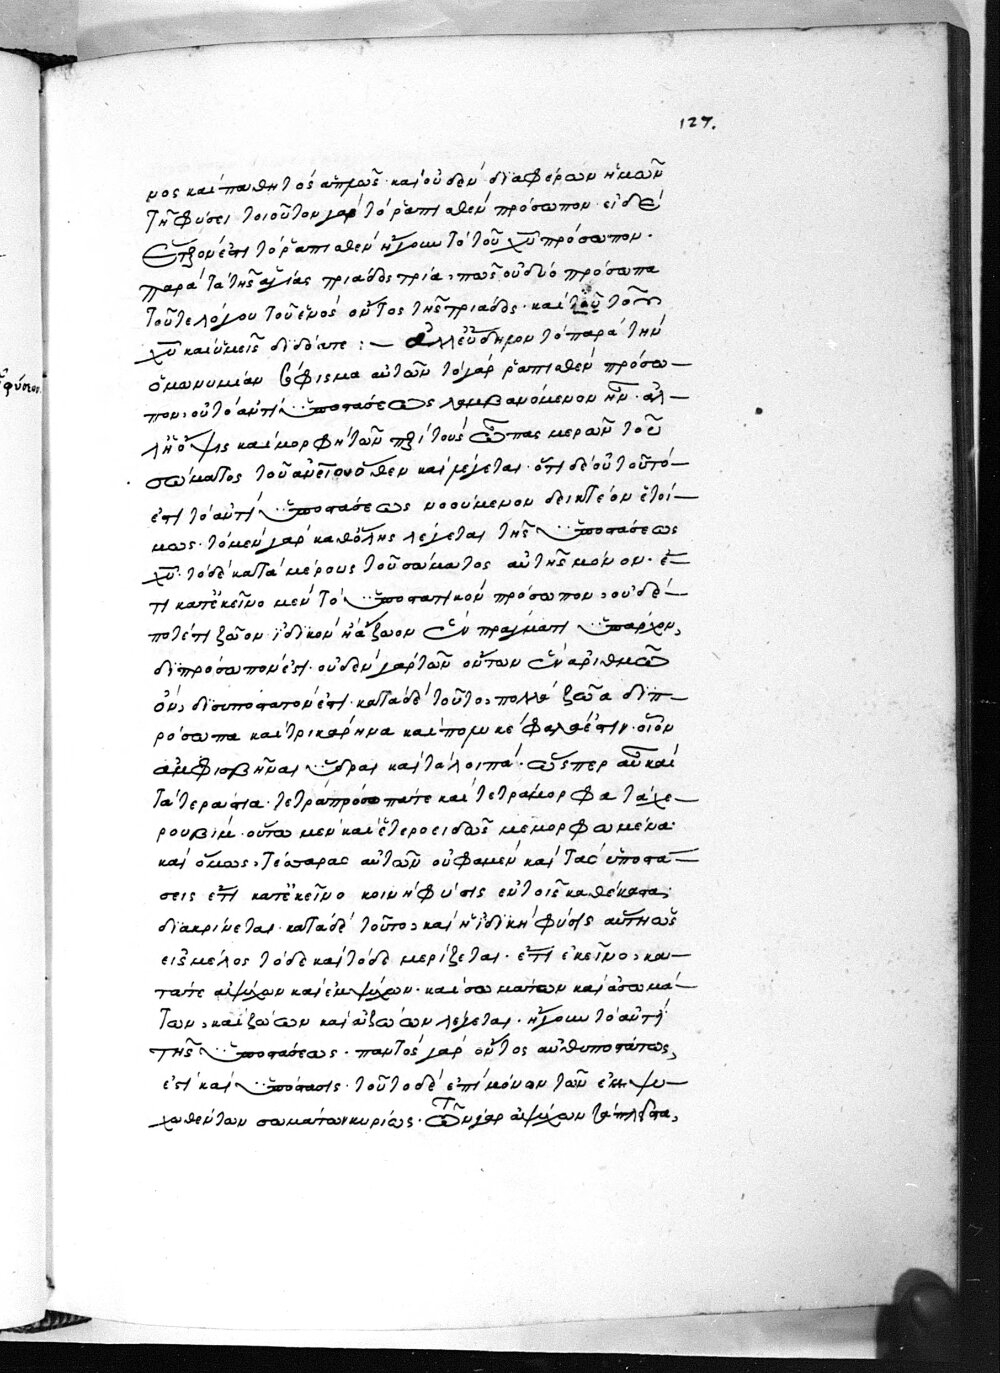 127.
μος καὶ παθητὸς ἁπλῶς· καὶ οὐδὲν διαφέρων ἡμῶν
τῇ φύσει τοιοῦτον γὰρ τὸ ῥαπισθὲν πρόσωπον· εἰ δὲ
ἕτερόν ἐστι τὸ ῥαπισθὲν ἤγουν τὸ τοῦ χυ πρόσωπον·
παρὰ τὰ τῆς ἁγίας τριάδος τρία, πῶς οὐ δύο πρόσωπα
τοῦτε λόγου τοῦ ἑνὸς ὄντος τῆς τριάδος· καὶ τοῦ
χυ καὶ ὑμεῖς διδόατε :— ἀλλ' εὔδηλον τὸ παρὰ τὴν
ὁμωνυμίαν σόφισμα αὐτῶν τὸ γὰρ ῥαπισθὲν πρόσω—
πον, οὐ τὸ ἀντὶ ὑποστάσεως λαμβανόμενον ἦν· ἀλ—
λ' ἡ ὄψις καὶ μορφὴ τῶν περὶ τοὺς ὦπας μερῶν τοῦ
σώματος τοῦ ὅθεν καὶ λέγεται· ὅτι δὲ οὐ τοῦτό—
ἐστι τὸ ἀντὶ ὑποστάσεως νοούμενον δεικτέον ἑτοί—
μως· τὸ μὲν γὰρ καθόλης λέγεται τῆς ὑποστάσεως
χυ· τὸ δὲ κατὰ μέρους τοῦ σώματος αὐτῆς μόνον· ἔ—
τι κατ' ἐκεῖνο μὲν τὸ ὑποστατικὸν πρόσωπον, οὐδέ—
ποτέ τι ζῶον ἰδικὸν ἢ ἄζωον ἓν πράγματι ὑπάρχον,
διπρόσωπόν ἐστι· οὐδὲν γὰρ τῶν ὄντων ἓν ἀριθμῷ
ὂν, δισυπόστατόν ἐστι· κατὰ δὲ τοῦτο, πολλὰ ζῶα διπ—
ρόσωπα καὶ τρικάρηνα καὶ πολυκέφαλά ἐστιν· οἷον
ἀμφισβῆναι ὕδραι καὶ τὰ λοιπά· ὥσπερ αὖ καὶ
τὰ τεράστια· τετραπρόσωπά τε καὶ τετράμορφα τὰ χε—
ρουβίμ· οὕτω μὲν καὶ ἑτεροειδῶς μεμορφωμένα·
καὶ ὅμως, τέσσαρας αὐτῶν οὔ φαμεν καὶ τὰς ὑποστά—
σεις ἔτι κατ' ἐκεῖνο κοινὴ φύσις ἐν τοῖς καθέκαστα,
διακρίνεται· κατὰ δὲ τοῦτο, καὶ ἡ ἰδικὴ φύσις αὕτη ὡς
εἰς μέλος τόδε καὶ τόδε μερίζεται· ἔτι ἐκεῖνο, κα—
τά τε ἀψύχων καὶ ἐμψύχων· καὶ σωμάτων καὶ ἀσωμά—
των, καὶ ζώων καὶ ἀζώων λέγεται· ἤγουν τὸ ἀντὶ
τῆς ὑποστάσεως· παντὸς γὰρ ὄντος αὐθυποστάτως,
ἐστὶ καὶ ὑπόστασις· τοῦτο δὲ ἐπὶ μόνων τῶν ἐμψυ—
χωθέντων σωμάτων κυρίως· τῶν γὰρ ἀψύχων